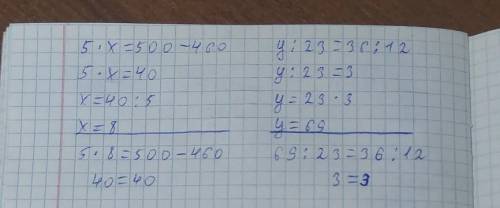 5 · x = 500 - 460
5 · x = 40
x = 40 : 5
x = 8
5 · 8 = 500 - 460
40 = 40
y : 23 = 36 : 12
y : 23 = 3
y = 23 · 3
y = 69
69 : 23 = 36 : 12
3 = 3